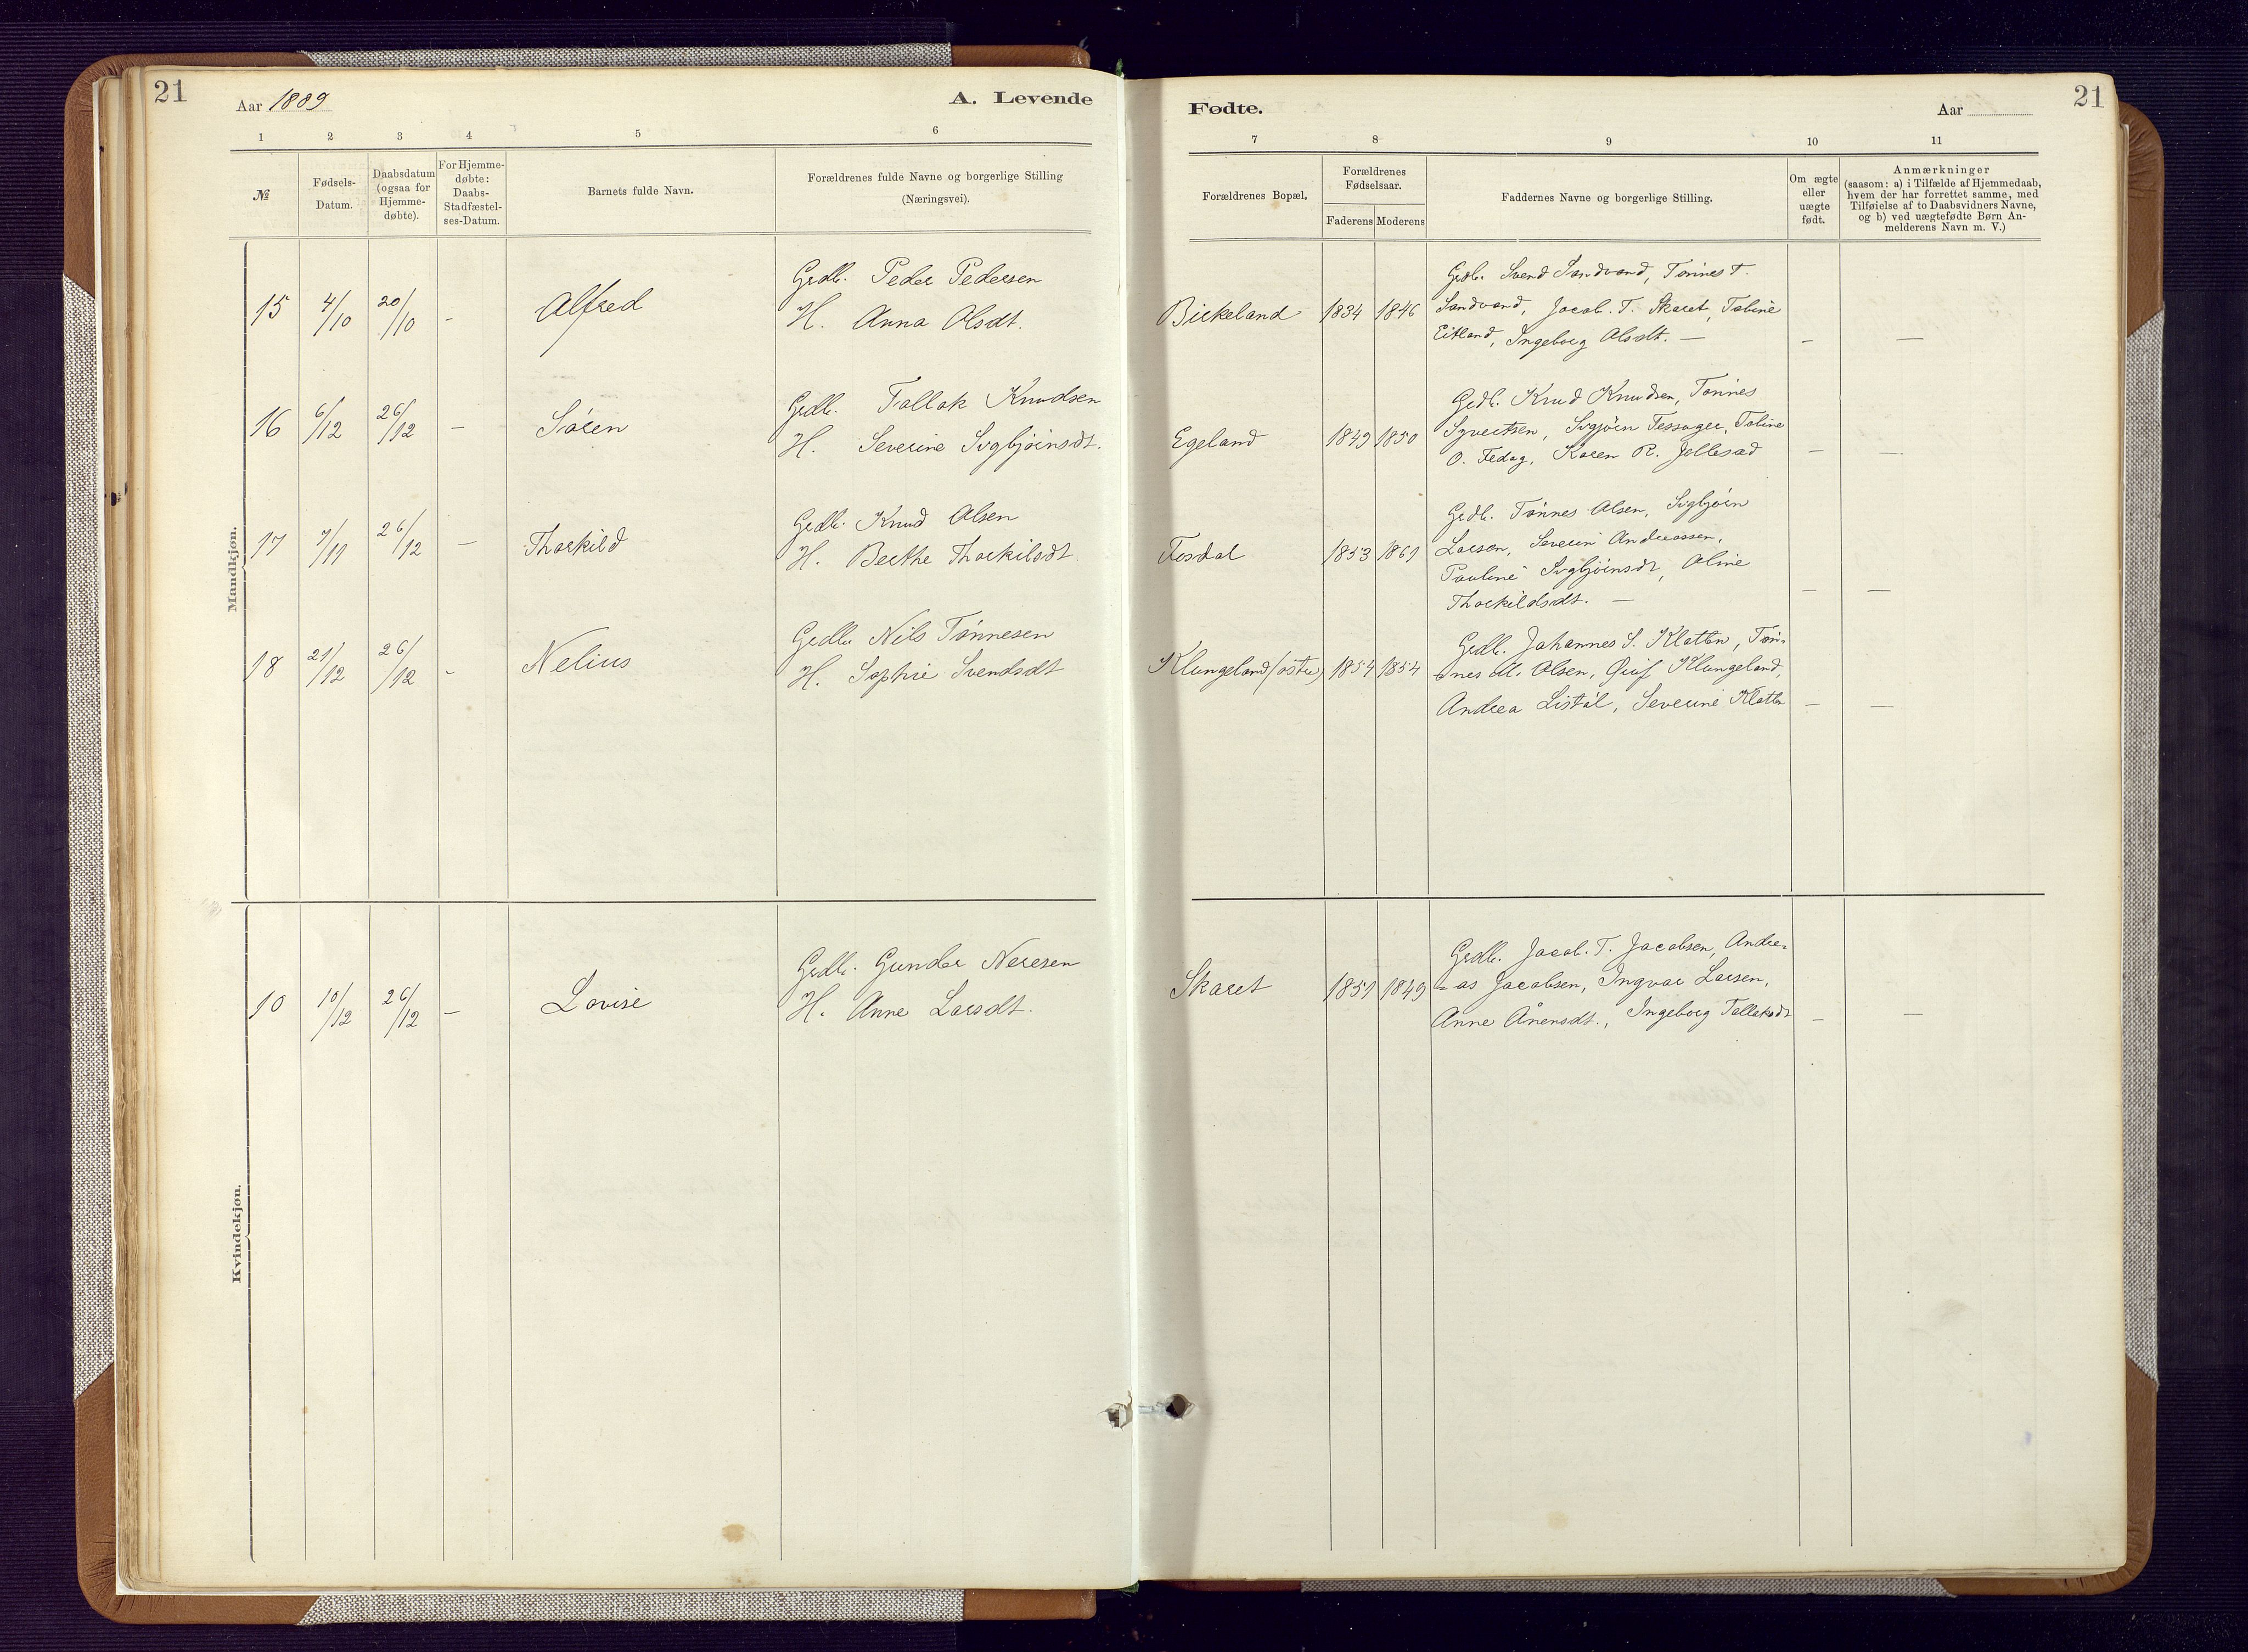 21
Aar 1889
A. Levende
Fødte.
Aar
21
1 2 3 4 5 6 7 8 9 10 11
№
Fødsels-
Datum.
Daabsdatum
(ogsaa for
Hjemme-
døbte).
For Hjemme-
døbte:
Daabs-
Stadfæstel-
ses-Datum.
Barnets fulde Navn.
Forældrenes fulde Navne og borgerlige Stilling
(Næringsvei).
Forældrenes Bopæl.
Forældrenes
Fødselsaar.
Faderens Moderens
Faddernes Navne og borgerlige Stilling.
Om ægte
eller
uægte
født.
Anmærkninger
(saasom: a) i Tilfælde af Hjemmedaab,
hvem der har forrettet samme, med
Tilføielse af to Daabsvidners Navne,
og b) ved uægtefødte Børn An-
melderens Navn m. V.)
Mandkjøn.
15 4/10 20/10 - Alfred
Grdb. Peder Pedersen
H. Anna Olsdt.
Birkeland 1834 1846
Grdb. Svend Sandvand, Tønnes T.
Sandvand, Jacob. T. Skaret, Tobine
Eitland, Ingeborg Olsdt. —
— —
16 6/12 26/12 — Søren
Grdb. Tollak Knudsen
H. Severine Sigbjørnsdt.
Egeland 1849 1850
Grdb. Knud Knudsen, Tønnes
Syvertsen, Sigjørn Tessager, Tobine
O. Fedog, Karen R. Jellesad
— —
17 7/11 26/12 — Thorkild
Grdb. Knud Olsen
H. Berthe Thorkilsdt.
Fosdal 1853 1861
Grdb. Tønnes Olsen, Sigbjørn
Larsen, Severin Andreassen,
Pauline Sigbjørnsdt, Oline
Thorkildsdt. —
— —
18 21/12 26/12 - Nelius
Grdb. Nils Tønnesen
H. Sophie Svendsdt
Klungeland (østre) 1854 1854
Grdb. Johannes S. Kloften, Tøn-
nes M. Olsen, Klungeland,
Andrea Listøl, Severine Kloften
— —
Kvindekjøn.
10 10/12 26/12 — Lovise
Grdb. Gunder Neresen
H. Anne Larsdt.
Skaret 1851 1849
Grdb. Jacob. T. Jacobsen, Andre-
=as Jacobsen, Ingvar Larsen,
Anne Ånensdt., Ingeborg Tollaksdt
— —